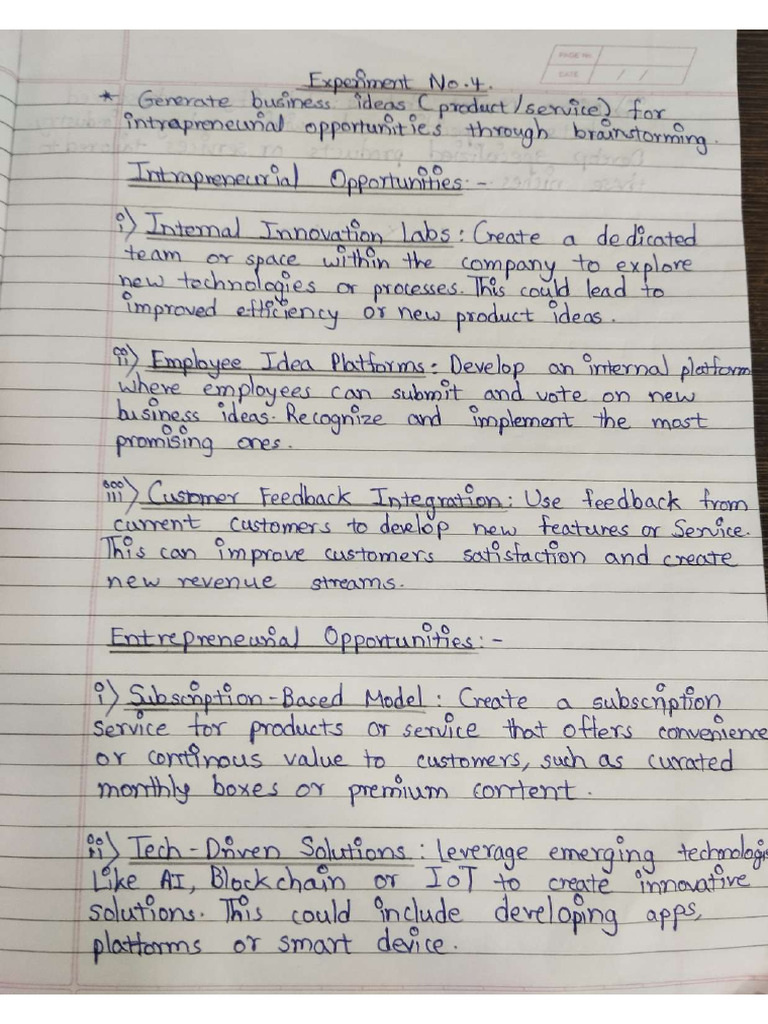 PAGE NO.
DATE / /
Experiment No.4.
* Generate business ideas (product/service) for
intrapreneurial opportunities through brainstorming.
Intrapreneurial Opportunities:-
i) Internal Innovation Labs: Create a dedicated
team or space within the company to explore
new technologies or processes. This could lead to
improved efficiency or new product ideas.
ii) Employee Idea Platforms: Develop an internal platform
where employees can submit and vote on new
business ideas. Recognize and implement the most
promising ones.
iii) Customer Feedback Integration: Use feedback from
current customers to develop new features or Service.
This can improve customers satisfaction and create
new revenue streams.
Entrepreneurial Opportunities:-
i) Subscription-Based Model: Create a subscription
service for products or service that offers convenience
or continous value to customers, such as curated
monthly boxes or premium content.
ii) Tech-Driven Solutions: Leverage emerging technologie
Like AI, Blockchain or IoT to create innovative
solutions. This could include developing apps,
platforms or smart device.